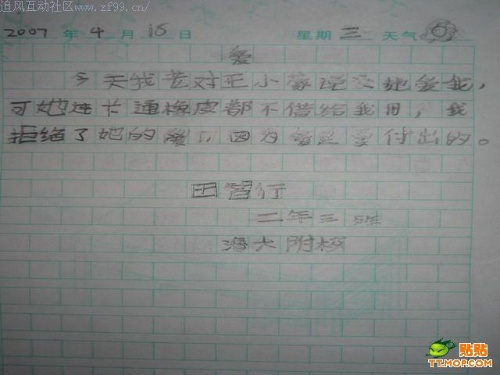 追风互动社区
www.zf99.cn)
2007 年 4 月 16 日 星期 三 天气
爱
今天我芷对王小蒙说她爱我,
可她连卡通橡皮都不借给我用,我
拒绝了她的爱了,因为爱是要付出的。
田智行
二年三班
海大附校
贴贴
TT.MOP.COM